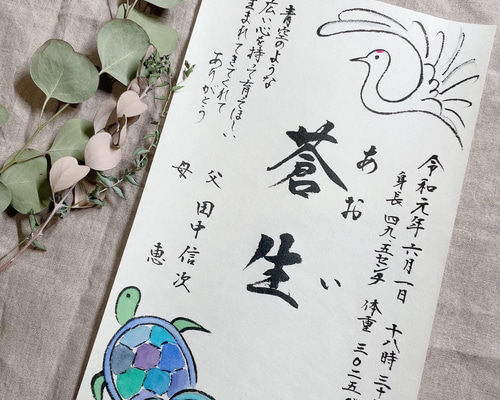 令和元年 六月一日 十八時 三十
身長 四九五センチ 体重 三〇二五
あおい
蒼生
青空のような
広い心を持って育ってほしい
生まれてきてくれて
ありがとう
父 田中信次
母 恵